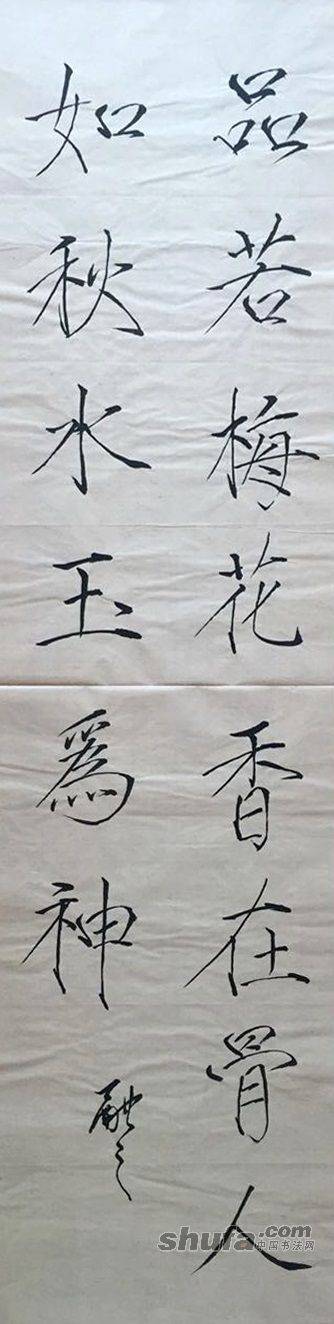 品若梅花香在骨人
如秋水玉為神
shufa.com
中国书法网